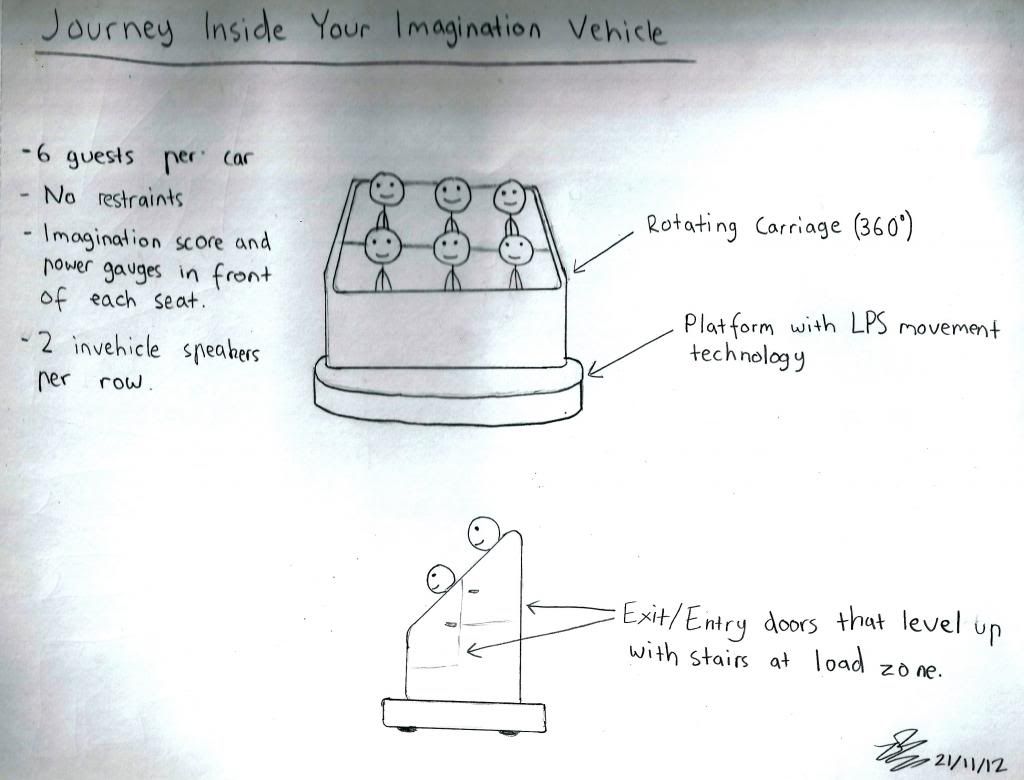 Journey Inside Your Imagination Vehicle
- 6 guests per car
- No restraints
- Imagination score and
power gauges in front
of each seat.
- 2 invehicle speakers
per row.
Rotating Carriage (360°)
Platform with LPS movement
technology
Exit/Entry doors that level up
with stairs at load zone.
21/11/12